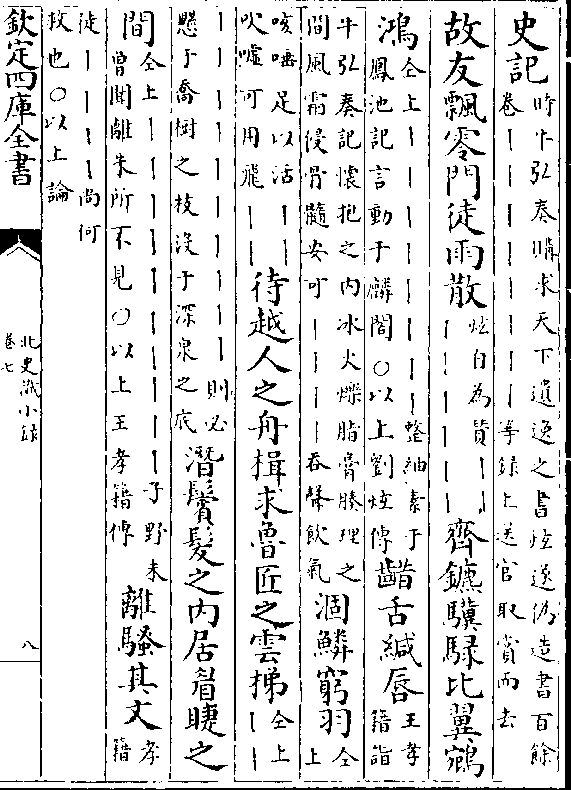 史記時牛弘奏購求天下遺逸之書炫遂偽造書百餘
卷||||||等録上送官取賞而去
故友飄零門徒雨散炫自為贊||
||||||齊鑣驥騄比翼鵷
鴻仝上||||||||整紬素于
鳳池記言動于麟閣○以上劉炫傳齰舌緘唇王孝
籍詣
牛弘奏記懷抱之內冰火爍脂膏腠理之
間風霜侵骨髓安可||||吞聲飲氣涸鱗窮羽仝
上
咳唾足以活||
吹噓可用飛||待越人之舟楫求魯匠之雲梯仝上
||
||||||||||則必
懸于喬樹之枝没于深泉之底潛鬢髮之內居眉睫之
間仝上|||||||||子野未
曾聞離朱所不見○以上王孝籍傳離騷其文孝
籍
徒||||尚何
救也○以上論
欽定四庫全書
北史識小録
卷七
八